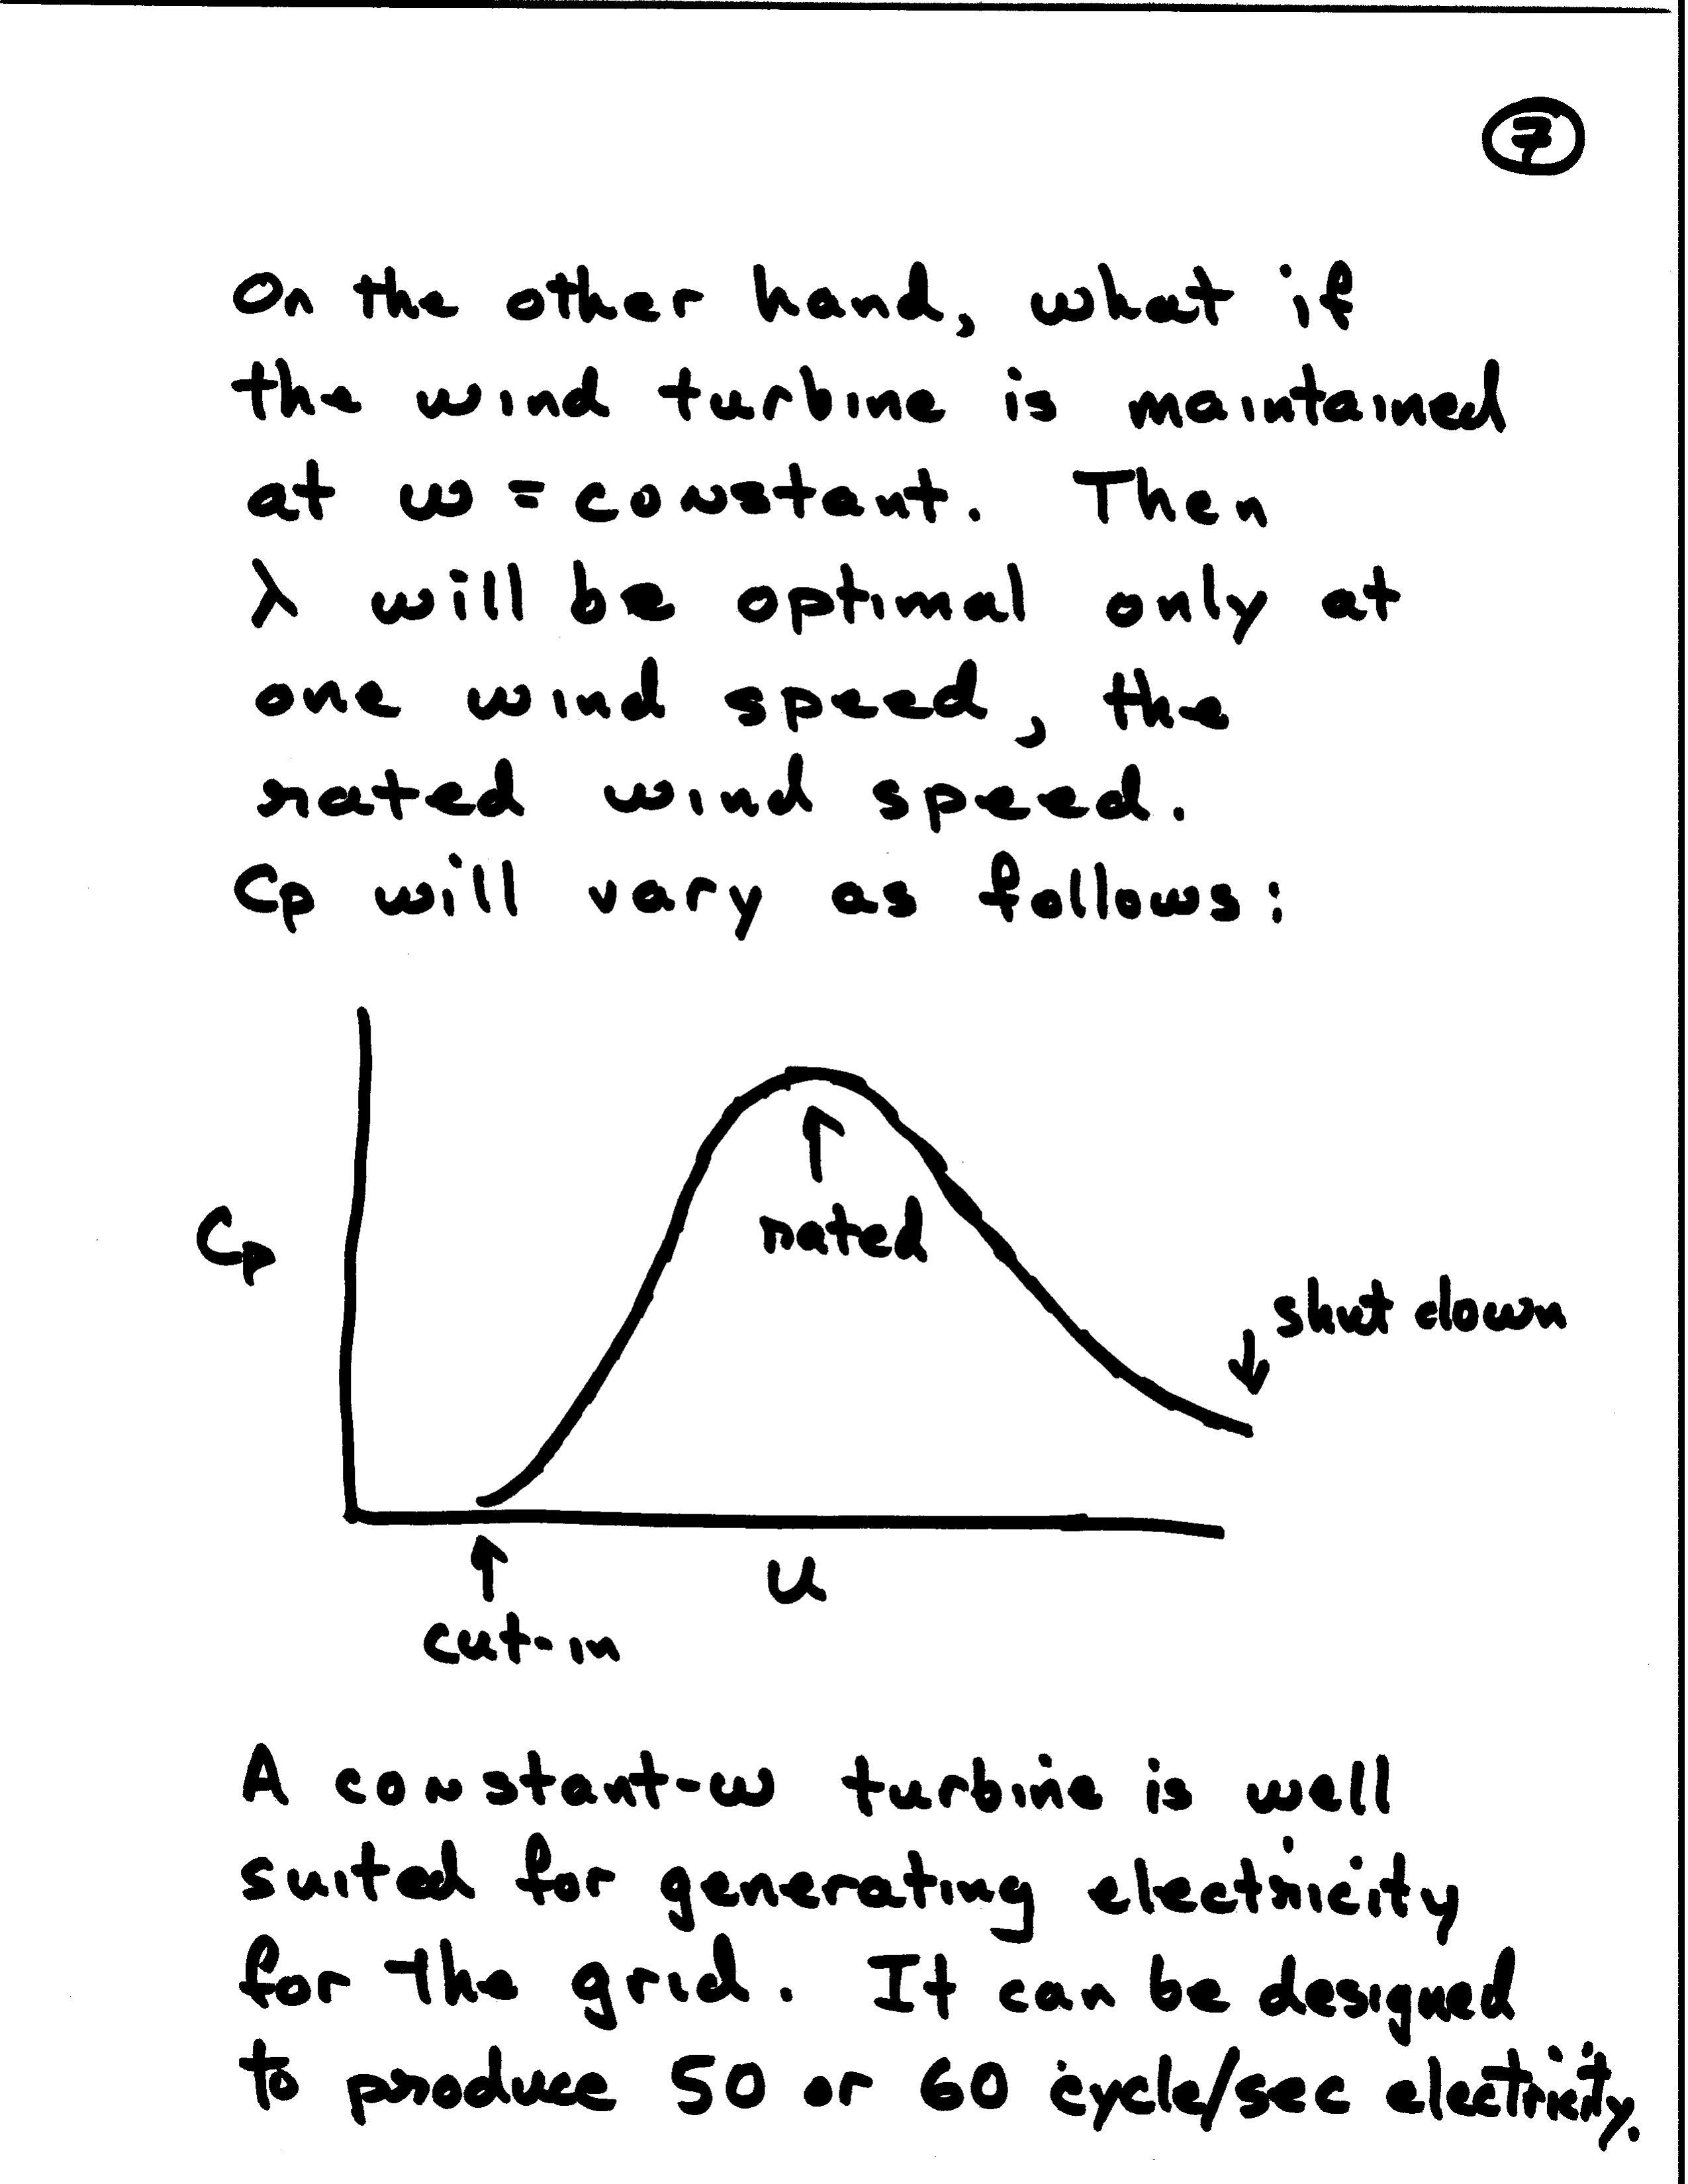 7
On the other hand, what if
the wind turbine is maintained
at ω = constant. Then
λ will be optimal only at
one wind speed, the
rated wind speed.
Cp will vary as follows:
Cp
rated
shut down
u
cut-in
A constant-ω turbine is well
suited for generating electricity
for the grid. It can be designed
to produce 50 or 60 cycle/sec electricity.